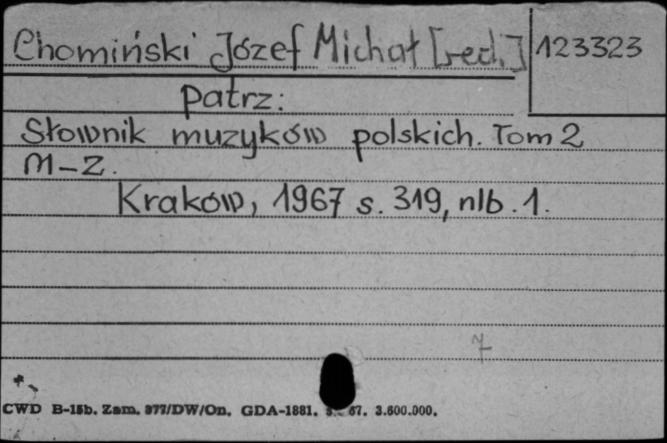 Chomiński Józef Michał [red.] 123323
Patrz:
Słownik muzyków polskich. Tom 2
M-Z.
Kraków, 1967 s. 319, nlb. 1.
7
CWD B-15b. Zam. 977/DW/On. GDA-1881. 67. 3.600.000.